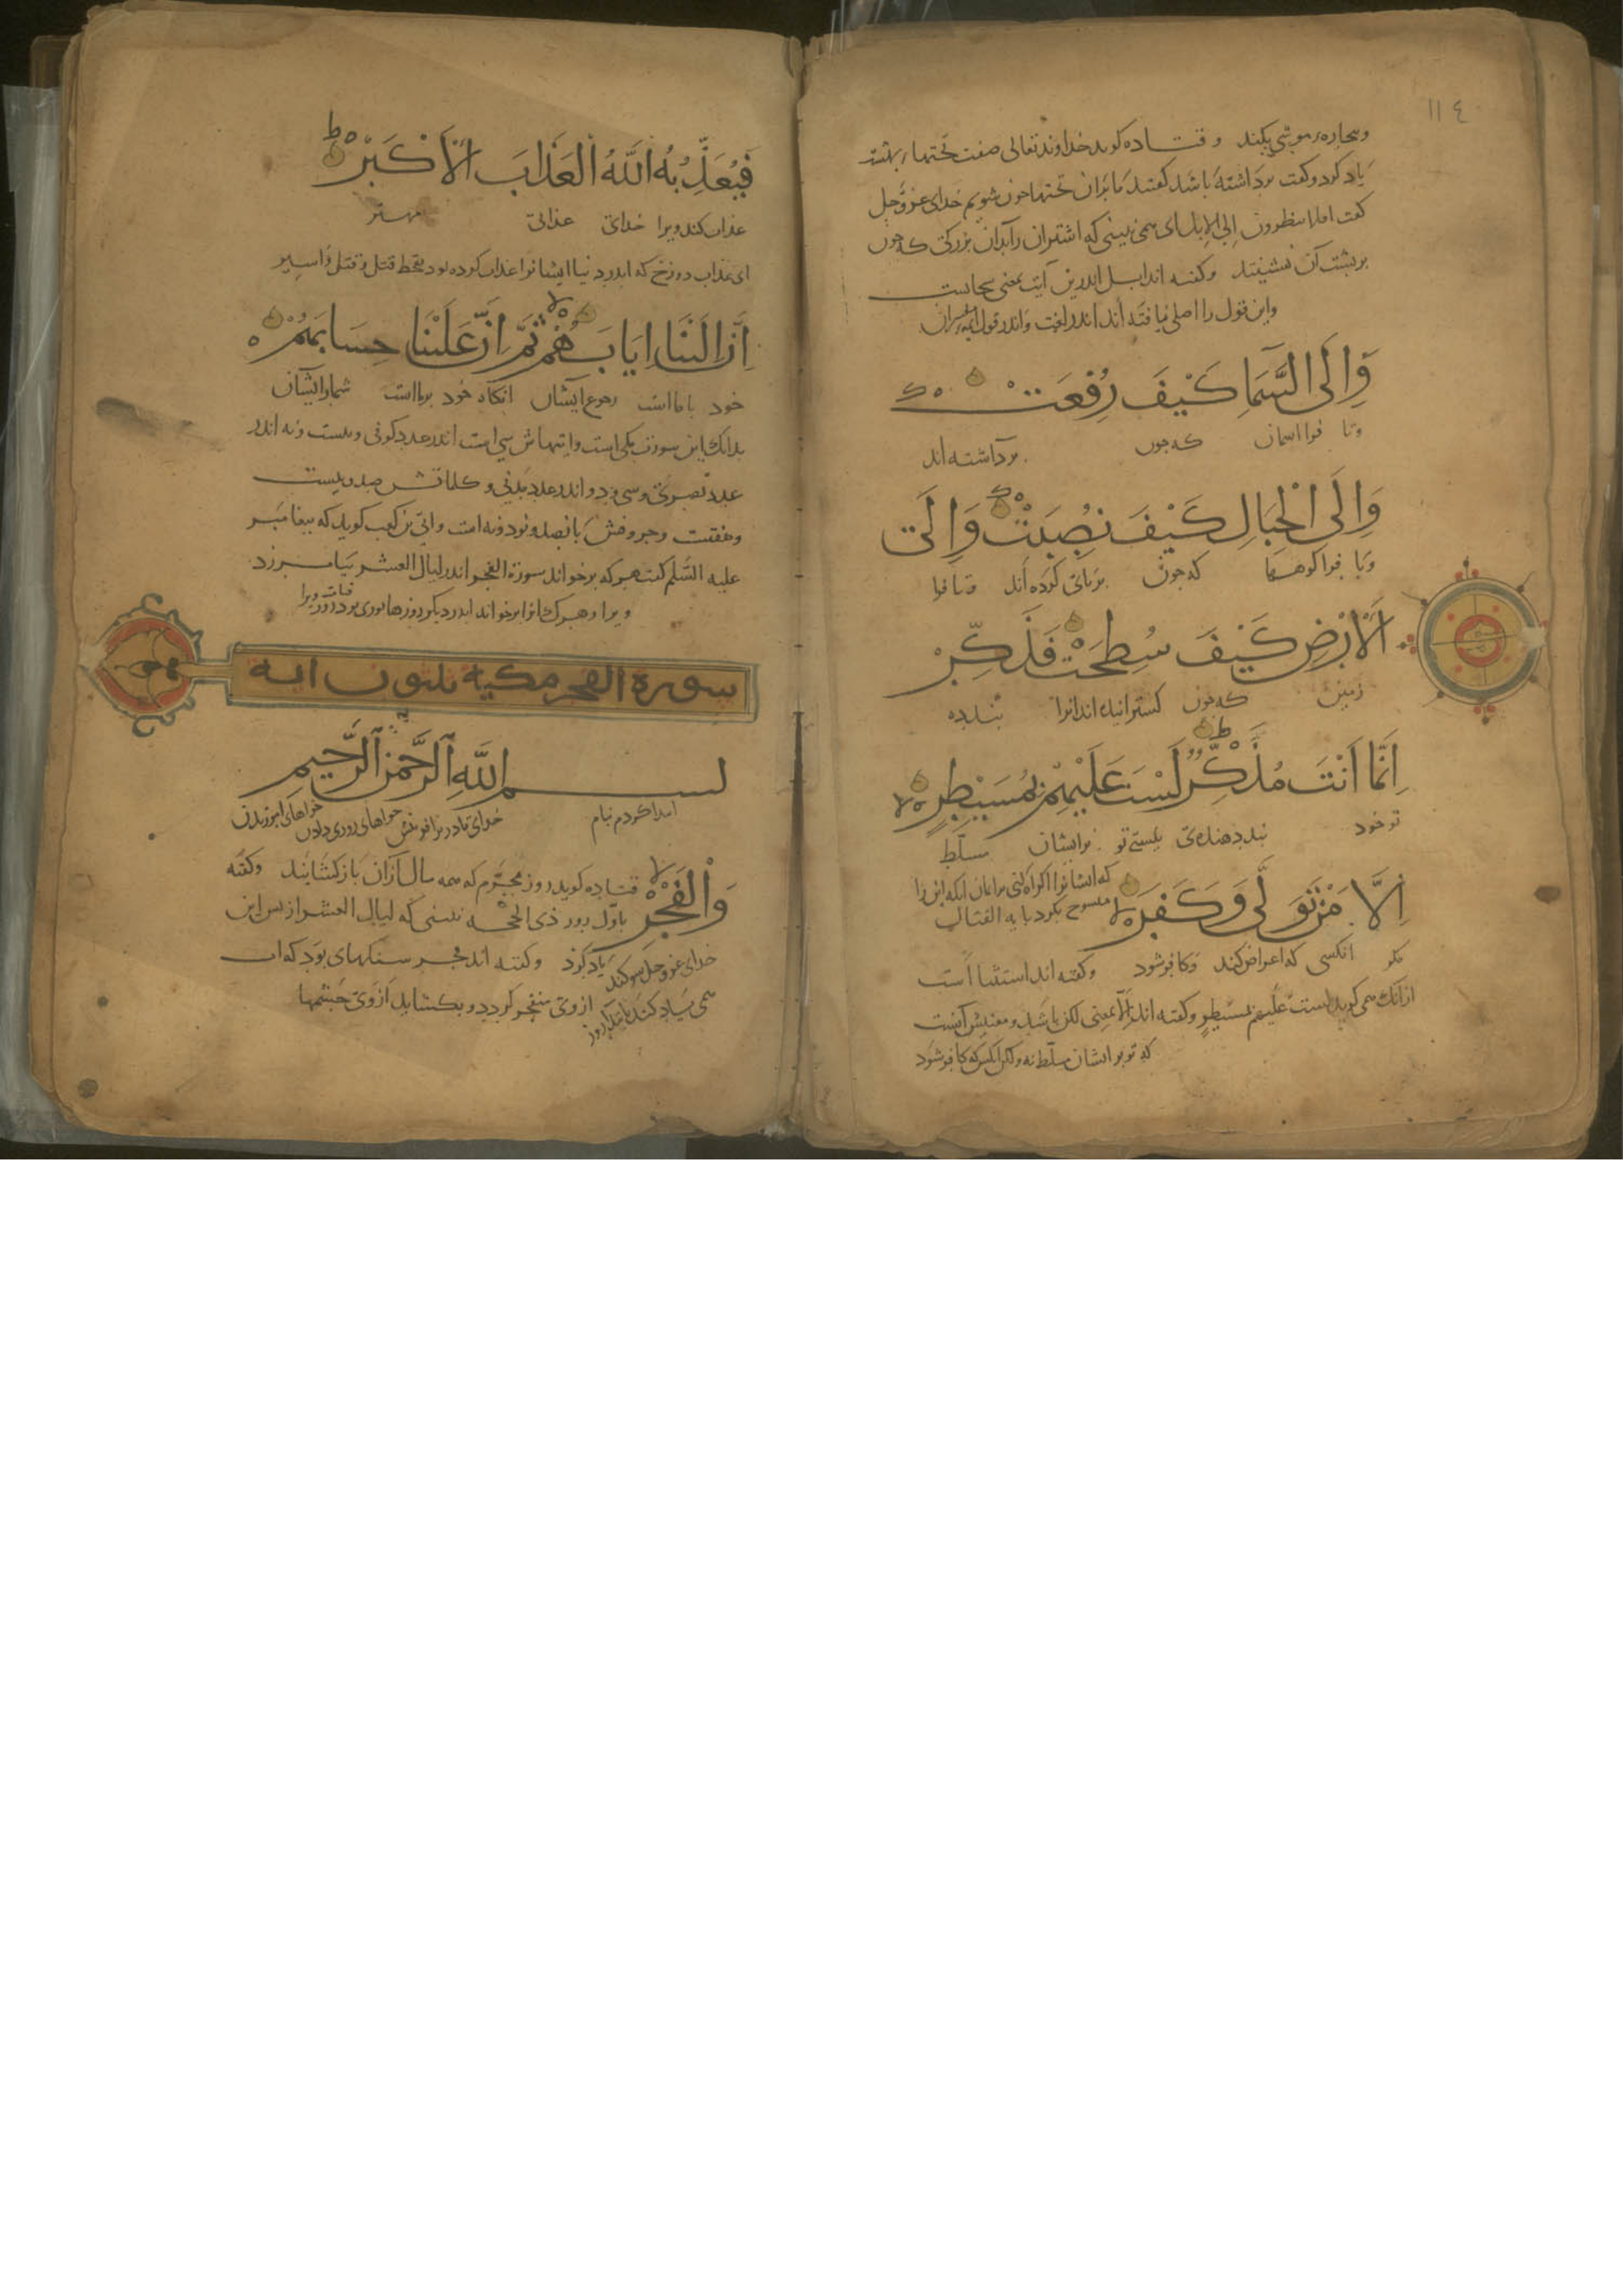 ١١٤
وبیچاره و موشی بکند و قتاده کوید خداوند تعالی صفت تختهاء بهشت
یاد کرد و کفت برداشته باشد کفتند ما بران تختها چون شویم خدای عز وجل
کفت افلا ینظرون الی الابل ای همی نبینی که اشتران را بدان بزرکی که چون
بر پشت آن نشینند و کفته اند ابل اندرین آیت بمعنی سحابست
واین قول را اصلی نیافته اند اندر لغت واندر قول مفسران
وَاِلَی السَّمَاءِ کَیْفَ رُفِعَتْ
وتا فرا اسمان که چون برداشته اند
وَاِلَی الْجِبَالِ کَیْفَ نُصِبَتْ وَاِلَی
وتا فرا کوهها که چون بر پای کرده اند وتا فرا
الْاَرْضِ کَیْفَ سُطِحَتْ فَذَکِّرْ
زمین که چون کسترانیده اند انرا پند ده
اِنَّمَا اَنْتَ مُذَکِّرٌ لَسْتَ عَلَیْهِمْ بِمُسَیْطِرٍ
تو خود پند دهنده ی نیستی تو بر ایشان مسلّط
که ایشانرا اکراه کنی بر ایمان انکه این را
اِلَّا مَنْ تَوَلَّی وَکَفَرَ
منسوخ بکرد بایه القتال
مکر انکسی که اعراض کند وکافر شود وکفته اند استثنا است
از آنک همی کوید لست علیهم بمسیطر وکفته اند الّا بمعنی لکن باشد ومعنیش آنست
که تو بر ایشان مسلّط نه ولکن انکس که کافر شود
فَیُعَذِّبُهُ اللَّهُ الْعَذَابَ الْاَکْبَرَ
عذاب کند ویرا خدای عذابی مهتر
ای عذاب دوزخ که اندر دنیا ایشانرا عذاب کرده بود بقحط و قتل واسیر
اِنَّ اِلَیْنَا اِیَابَهُمْ ثُمَّ اِنَّ عَلَیْنَا حِسَابَهُمْ
خود با ما است رجوع ایشان انکاه خود بر ما است شمار ایشان
بدانک این سورت مکی است وایتهاش سی است اندر عدد کوفی وبیست ونه اندر
عدد بصری وسی ودو اندر عدد مدنی وکلماتش صد وبیست
وهفتست وحروفش پانصد ونود ونه است وابی بن کعب کوید که پیغامبر
علیه السّلم کفت هر که بر خواند سورة الفجر اندر لیال العشر بیامرزد
ویرا وهرک انرا بر خواند اندر دیکر روزها نوری بود روز قیامت ویرا
سورة الفجر مکیة ثلثون ایة
بسم اللّه الرّحمن الرّحیم
ابتدا کردم بنام خدای قادر بر افرینش خواهای روزی دادن خواهای امرزیدن
وَالْفَجْرِ
قتاده کوید روز محرّم که همه سال ازان باز کشایند وکفته
باوّل روز ذی الحجه نبینی که لیال العشر از پس این
خدای عز وجل سوکند یاد کرد وکفته اند فجر سنکهای بود که اب
ازوی منفجر کردد وبکشاید ازوی چشمها
همی یاد کند